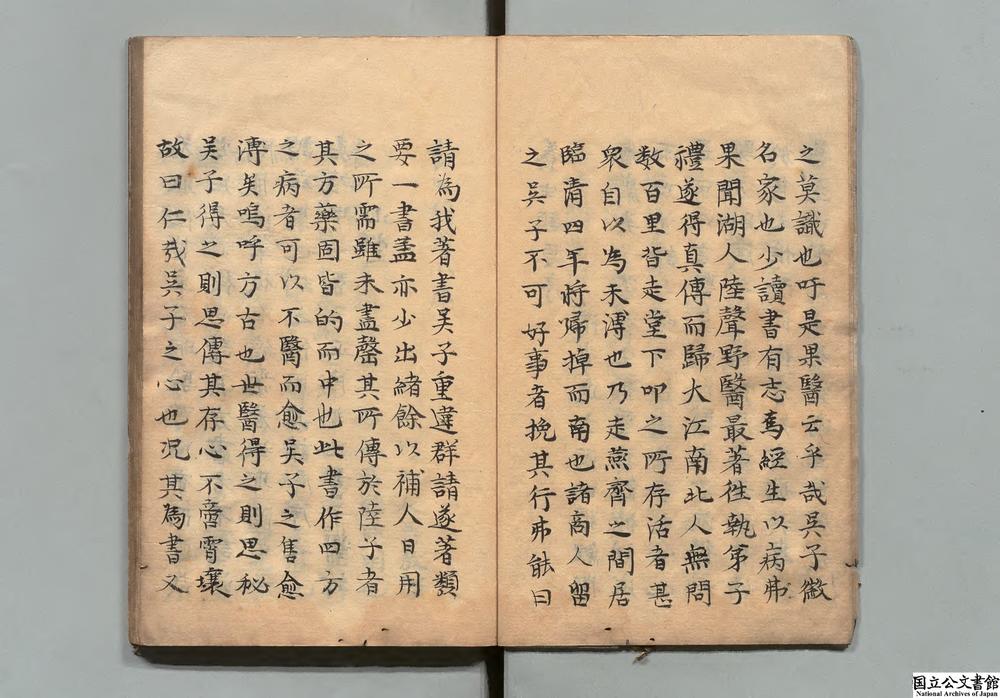 之莫識也吁是果醫云乎哉吳子徽
名家也少讀書有志爲經生以病弗
果聞湖人陸聲野醫最著徃執弟子
禮遂得真傳而歸大江南北人無問
数百里皆走堂下叩之所存活者甚
衆自以為未溥也乃走燕齊之間居
臨清四年將帰掉而南也諸商人留
之吳子不可好事者挽其行弗能曰
請為我著書吴子重違群請遂著類
要一書盖亦少出緒餘以補人日用
之所需雖未盡罄其所傳於陸子者
其方藥固皆的而中也此書作四方
之病者可以不醫而愈吴子之售愈
溥矣嗚呼方古也世醫得之則思秘
吴子得之則思傳其存心不啻霄壤
故曰仁哉吴子之心也况其為書又
国立公文書館
National Archives of Japan